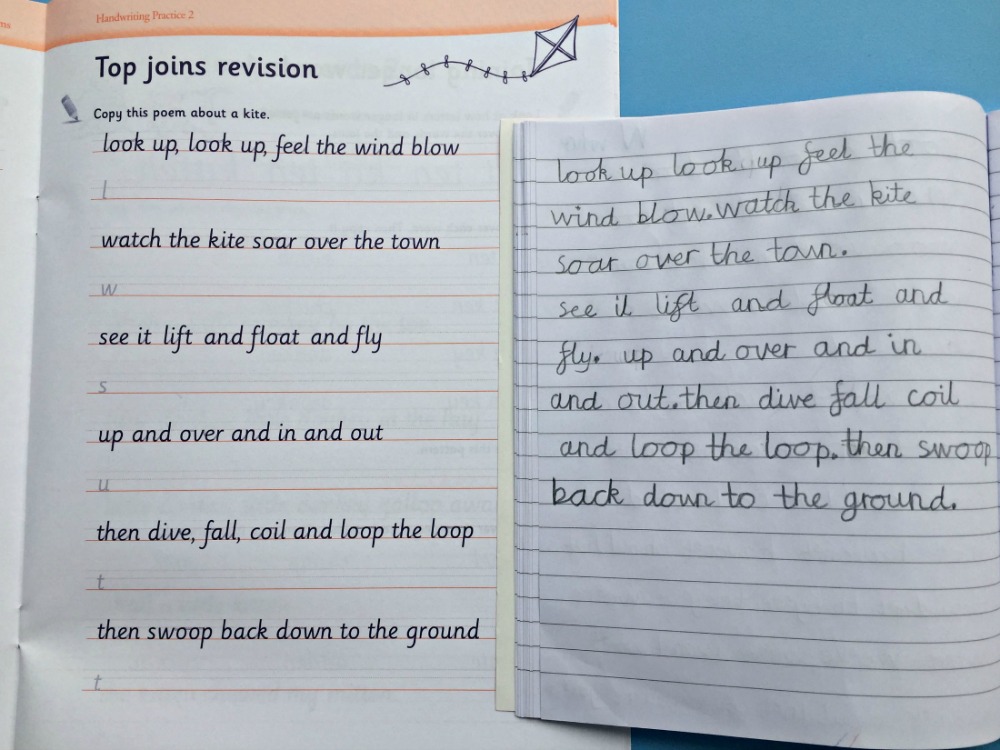 Handwriting Practice 2
Top joins revision
Copy this poem about a kite.
look up, look up, feel the wind blow
l
watch the kite soar over the town
w
see it lift and float and fly
s
up and over and in and out
u
then dive, fall, coil and loop the loop
t
then swoop back down to the ground
t
look up look up feel the
wind blow. watch the kite
soar over the town.
see it lift and float and
fly. up and over and in
and out. then dive fall coil
and loop the loop. then swoop
back down to the ground.